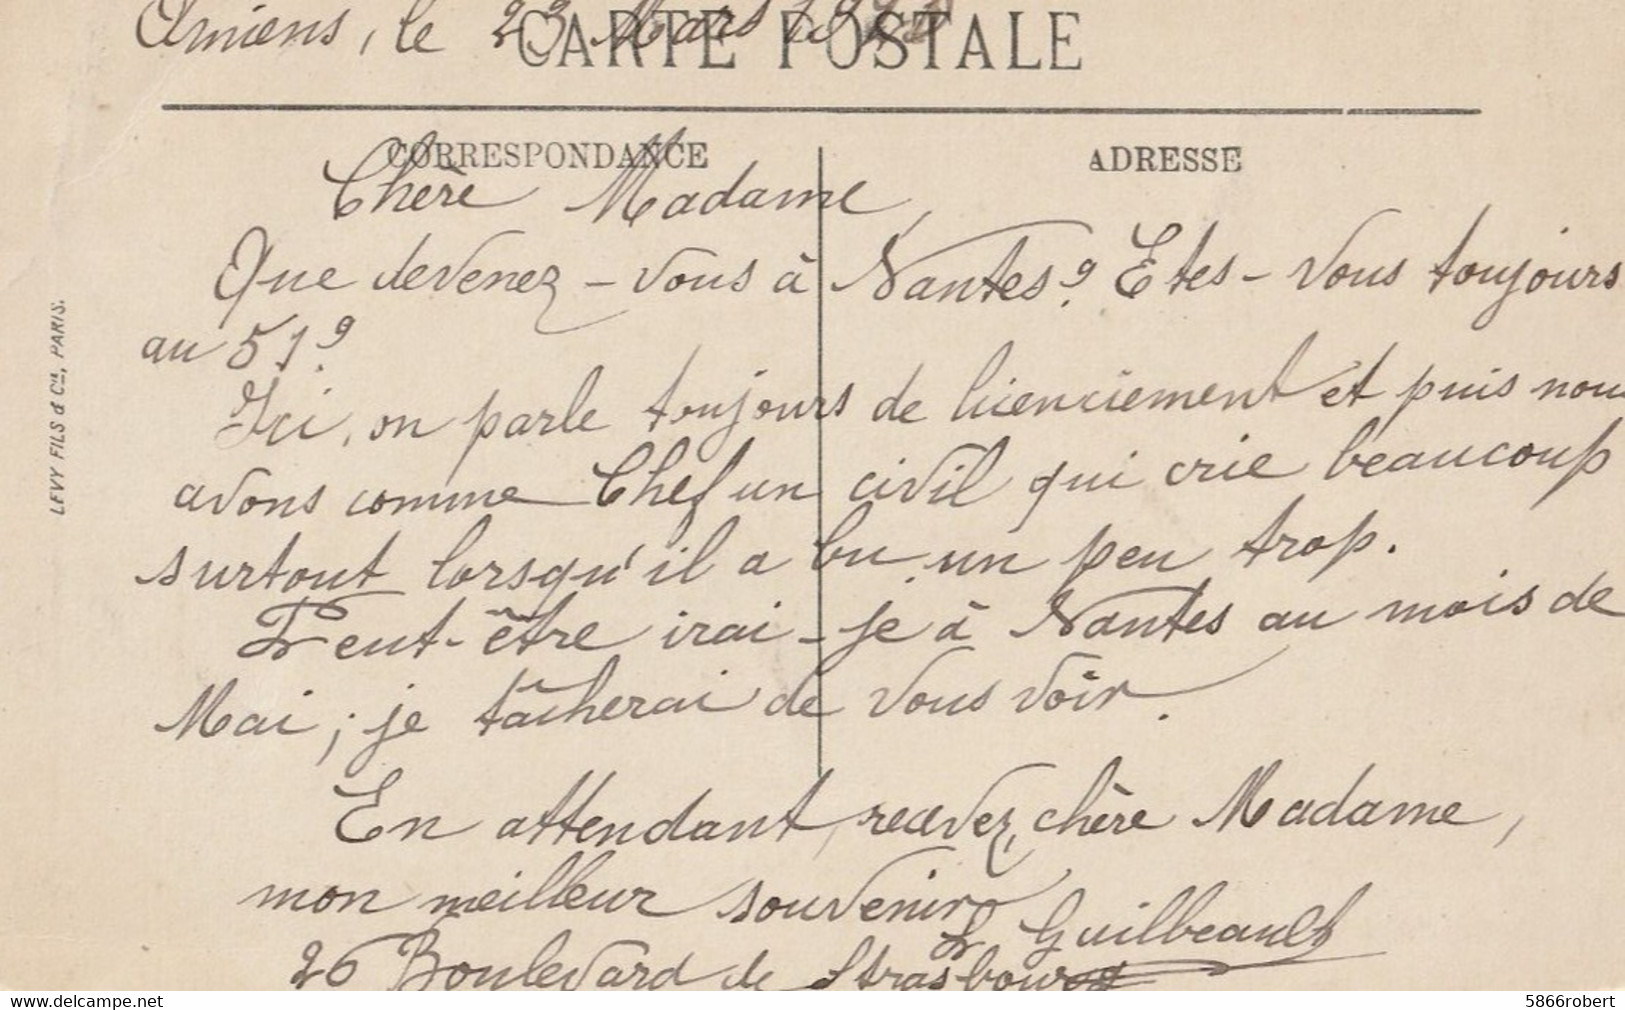 Amiens, le 23 Mars
CARTE POSTALE
CORRESPONDANCE
ADRESSE
Chère Madame,
Que devenez-vous à Nantes? Etes-vous toujours
au 51?
Ici, on parle toujours de licenciement et puis nous
avons comme Chef un civil qui crie beaucoup
surtout lorsqu'il a bu un peu trop.
Peut-être irai-je à Nantes au mois de
Mai; je tâcherai de vous voir.
En attendant, recevez, chère Madame,
mon meilleur souvenir
L Guilbeault
26 Boulevard de Strasbourg
LEVY FILS & Cie, PARIS.
5866robert